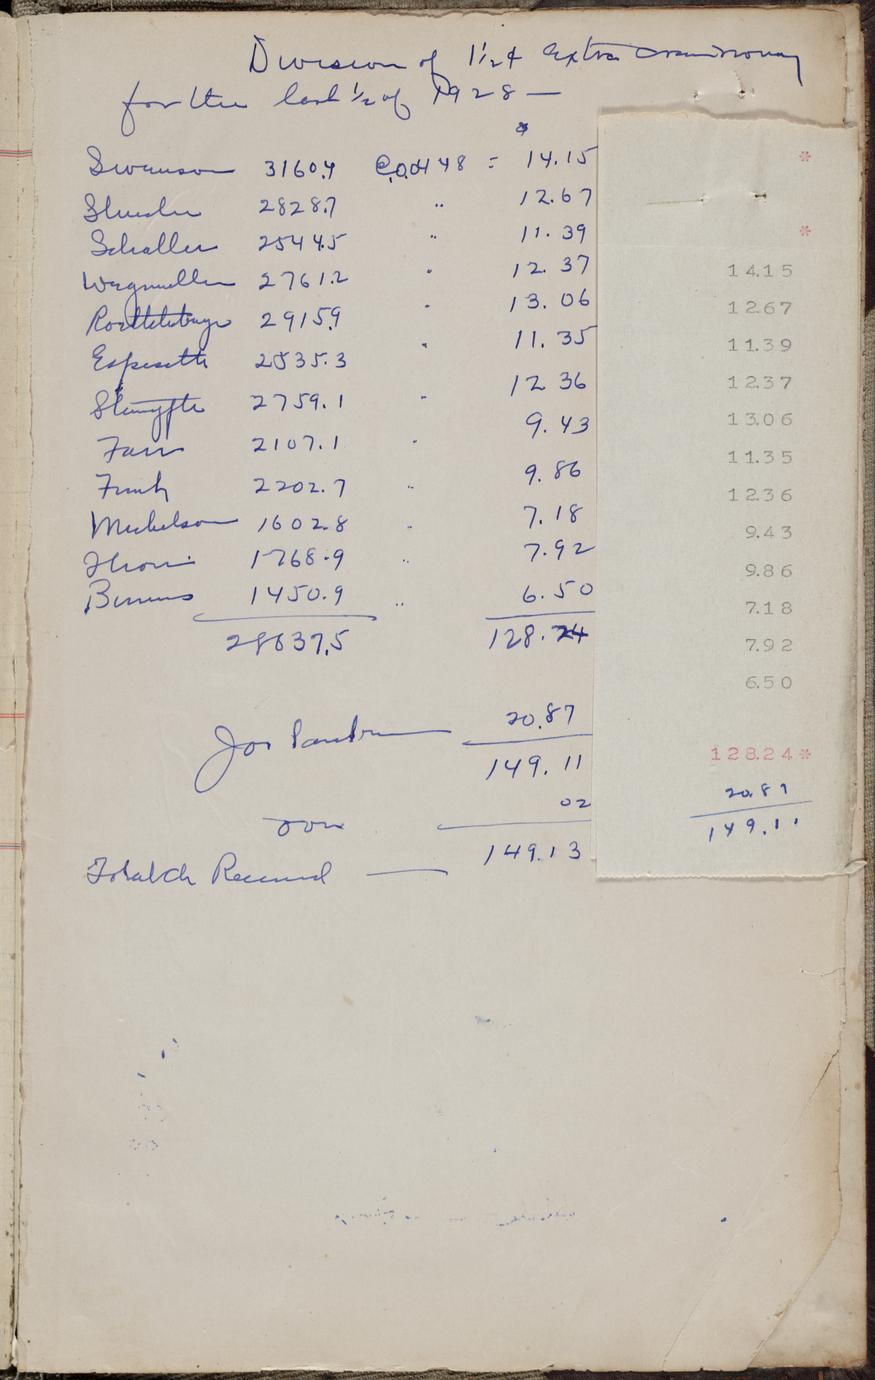 Division of 1½¢ Extra
for the last ½ of 1928 —
Swanson 3160.4 @.00448 = 14.15
2828.7 " 12.67
Schaller 2544.5 " 11.39
Wegmuller 2761.2 " 12.37
2915.9 " 13.06
2535.3 " 11.35
2759.1 " 12.36
Farr 2107.1 " 9.43
Funk 2202.7 " 9.86
Michelson 1602.8 " 7.18
1768.9 " 7.92
1450.9 " 6.50
28637.5 128.24
Jos 20.87
149.11
02
149.13
Total Ck Received —
*
*
14.15
12.67
11.39
12.37
13.06
11.35
12.36
9.43
9.86
7.18
7.92
6.50
128.24 *
20.87
149.11